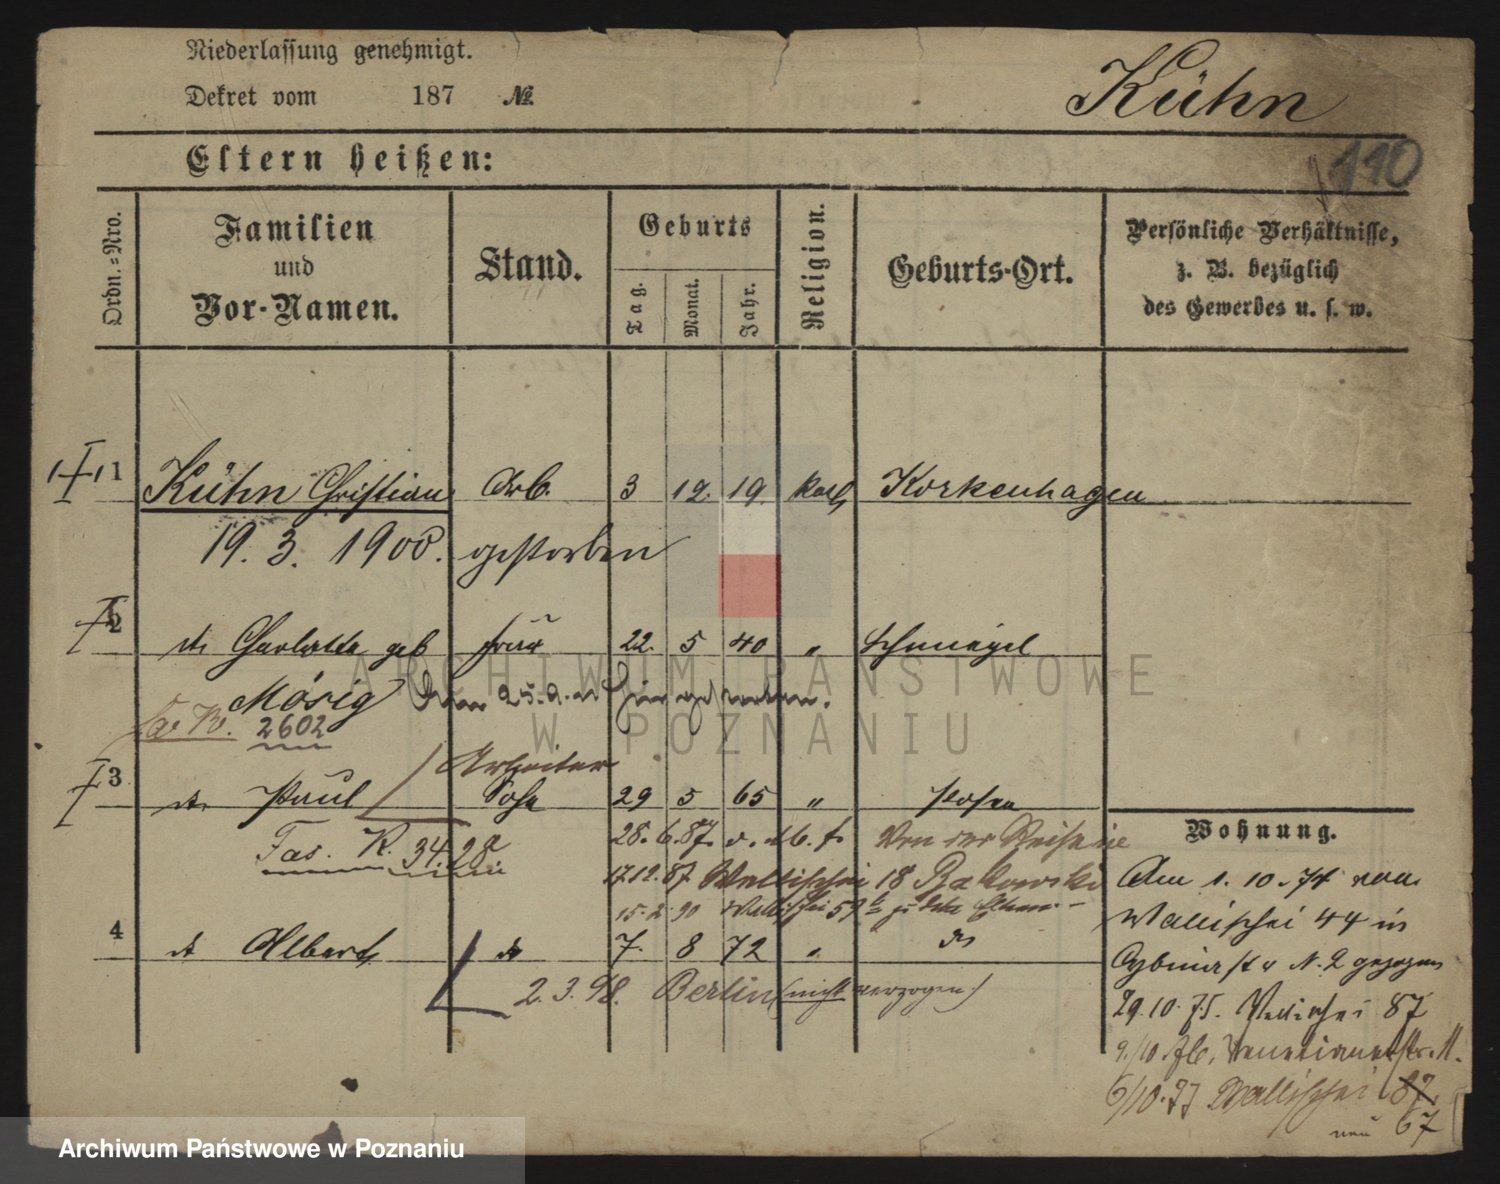 Niederlassung genehmigt.
Dekret vom 187 №
Kühn
110
Eltern heißen:
Ordn.-Nro.
Familien
und
Vor-Namen.
Stand.
Geburts
Tag.
Monat.
Jahr.
Religion.
Geburts-Ort.
Persönliche Verhältnisse,
z. B. bezüglich
des Gewerbes u. s. w.
1 Kühn Christian Arb. 3 12. 19. kath Korkenhagen
19. 3. 1900. gestorben
2 Charlotte geb Frau 22. 5 40 " Schmiegel
Mösig
2602
Arbeiter
3 Paul Sohn 29 5 65 " Posen
28. 6. 87. Von der Reise
Fas. K. 34.28a
17.12. 87 Wallischei 18
15. 2. 90 Wallischei
4 Albert 7. 8 72 "
2. 3. 98. Berlin (nicht verzogen.)
Wohnung.
Am 1. 10. 74 von
Wallischei 44 in
N. 2 gezogen
29. 10. 75. Wallischei 87
9./10. 76. Venetianerstr. 11.
6/10. 77 Wallischei 87.
neu 67
ARCHIWUM PAŃSTWOWE
W POZNANIU
Archiwum Państwowe w Poznaniu